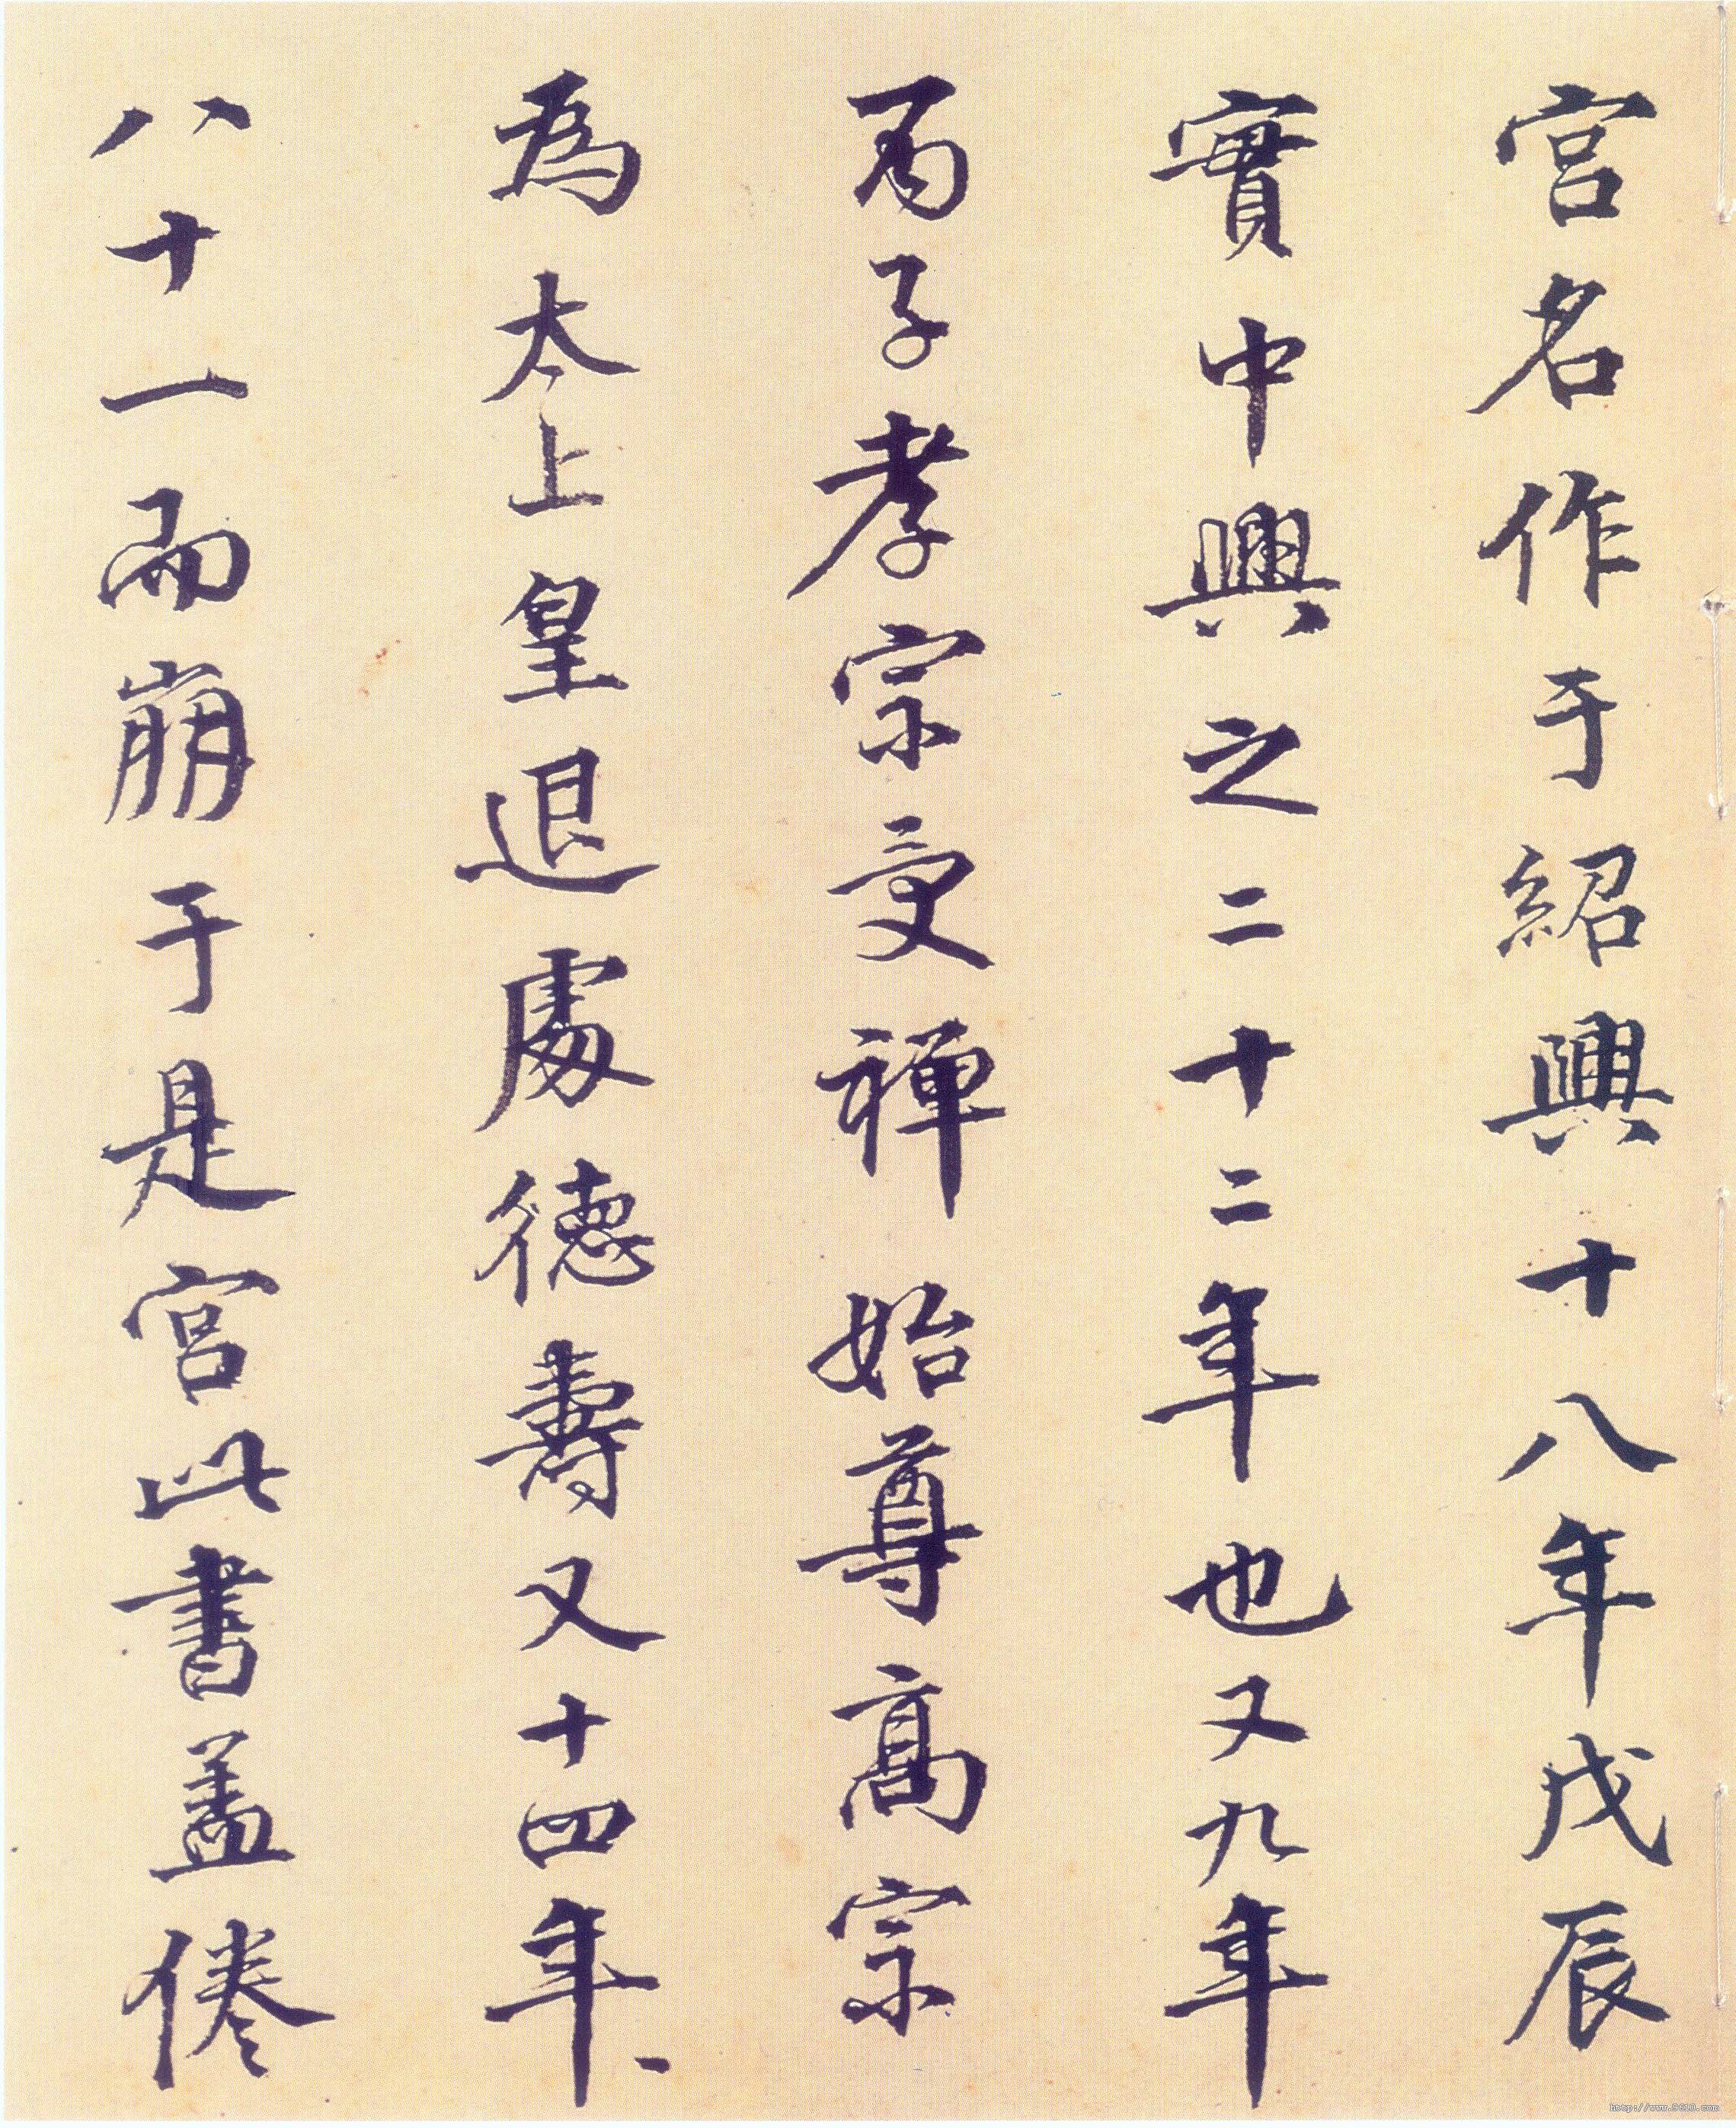 宮名作于紹興十八年戊辰
實中興之二十二年也又九年
丙子孝宗受禪始尊高宗
為太上皇退處德壽又十四年、
八十一而崩于是宮此書蓋倦
http://www.9610.com